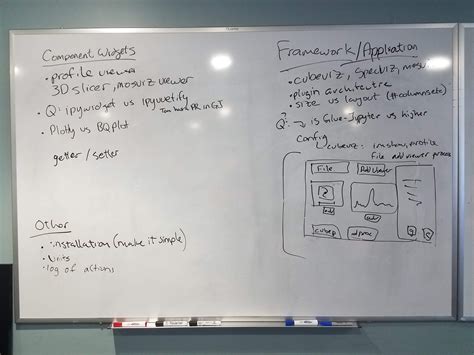 Component Widgets
• profile viewer
3D slicer, mosviz viewer
• Q: ipywidget vs ipyvuetify
Tom has PR in GJ
• Plotly vs BQplot
getter / setter
Other
• installation (make it simple)
• Units
• log of actions
Framework/Application
• cubeviz, specviz, mosviz
• plugin architecture
• size vs layout (#columnsets)
Q: → is Glue-Jupyter vs higher
Config
cubeviz: imshow, profile
File add viewer process
File
Add Viewer